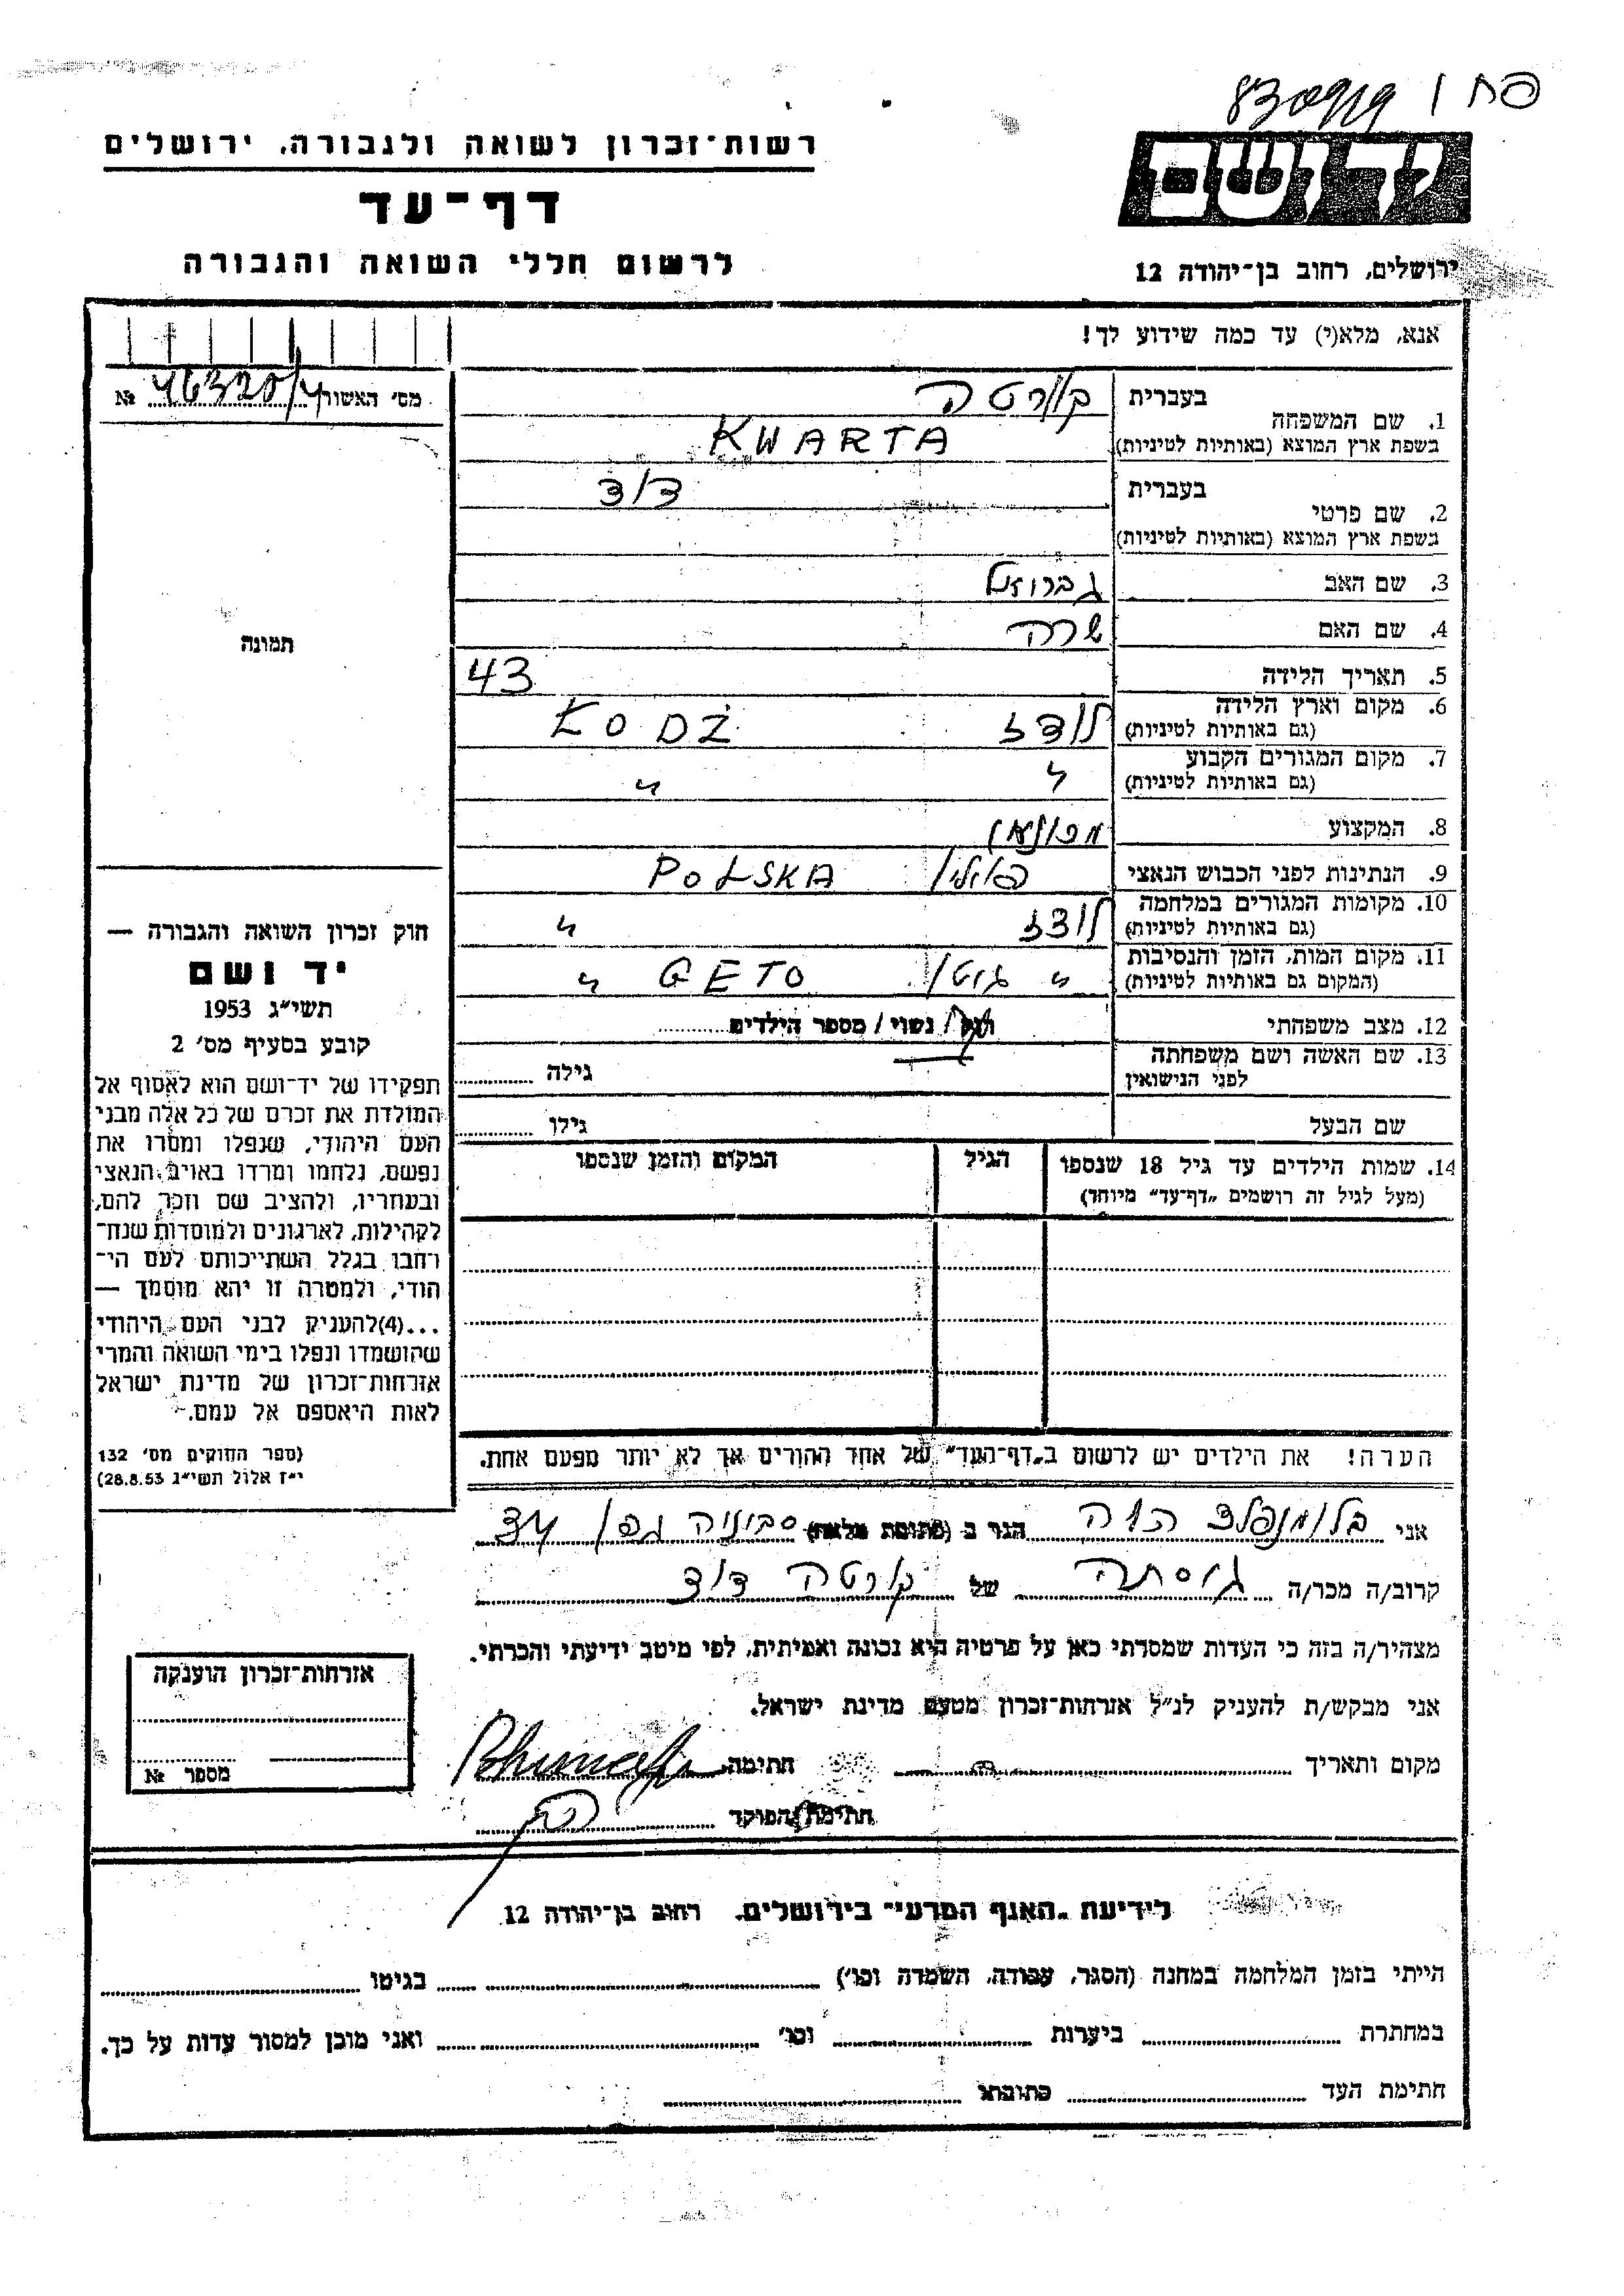 פח 1
רשות־זכרון לשואה ולגבורה, ירושלים
דף־עד
לרשום חללי השואה והגבורה
יד ושם
ירושלים, רחוב בן־יהודה 12
אנא, מלא(י) עד כמה שידוע לך!
מס׳ האשור 46320/4 №
בעברית קוורטה
1. שם המשפחה
בשפת ארץ המוצא (באותיות לטיניות) KWARTA
בעברית דוד
2. שם פרטי
בשפת ארץ המוצא (באותיות לטיניות)
3. שם האב
4. שם האם שרה
5. תאריך הלידה 43
6. מקום וארץ הלידה לודז ŁODŻ
(גם באותיות לטיניות)
7. מקום המגורים הקבוע " "
(גם באותיות לטיניות)
8. המקצוע
9. הנתינות לפני הכבוש הנאצי פולני POLSKA
10. מקומות המגורים במלחמה לודז "
(גם באותיות לטיניות)
11. מקום המות, הזמן והנסיבות " גטו GETO "
(המקום גם באותיות לטיניות)
12. מצב משפחתי רווק / נשוי / מספר הילדים
13. שם האשה ושם משפחתה
לפני הנישואין גילה
שם הבעל גילו
14. שמות הילדים עד גיל 18 שנספו הגיל המקום והזמן שנספו
(מעל לגיל זה רושמים „דף־עד״ מיוחד)
הערה! את הילדים יש לרשום ב„דף־העד״ של אחד ההורים אך לא יותר מפעם אחת.
תמונה
חוק זכרון השואה והגבורה —
יד ושם
תשי״ג 1953
קובע בסעיף מס׳ 2
תפקידו של יד־ושם הוא לאסוף אל
המולדת את זכרם של כל אלה מבני
העם היהודי, שנפלו ומסרו את
נפשם, נלחמו ומרדו באויב הנאצי
ובעוזריו, ולהציב שם וזכר להם,
לקהילות, לארגונים ולמוסדות שנח־
רבו בגלל השתייכותם לעם הי־
הודי, ולמטרה זו יהא מוסמך —
...(4) להעניק לבני העם היהודי
שהושמדו ונפלו בימי השואה והמרי
אזרחות־זכרון של מדינת ישראל
לאות היאספם אל עמם.
(ספר החוקים מס׳ 132
י״ז אלול תשי״ג 28.8.53)
אני בלומנפלד הגר ב (כתובת מלאה) סביניה
קרוב/ה מכר/ה גיסתה של קורטה דוד
מצהיר/ה בזה כי העדות שמסרתי כאן על פרטיה היא נכונה ואמיתית, לפי מיטב ידיעתי והכרתי.
אני מבקש/ת להעניק לנ״ל אזרחות־זכרון מטעם מדינת ישראל.
מקום ותאריך חתימה
חתימת הפוקד
אזרחות־זכרון הוענקה
מספר №
לידיעת „האגף המדעי״ בירושלים, רחוב בן־יהודה 12
הייתי בזמן המלחמה במחנה (הסגר, עבודה, השמדה וכו׳) בגיטו
במחתרת ביערות וכו׳ ואני מוכן למסור עדות על כך.
חתימת העד כתובתו